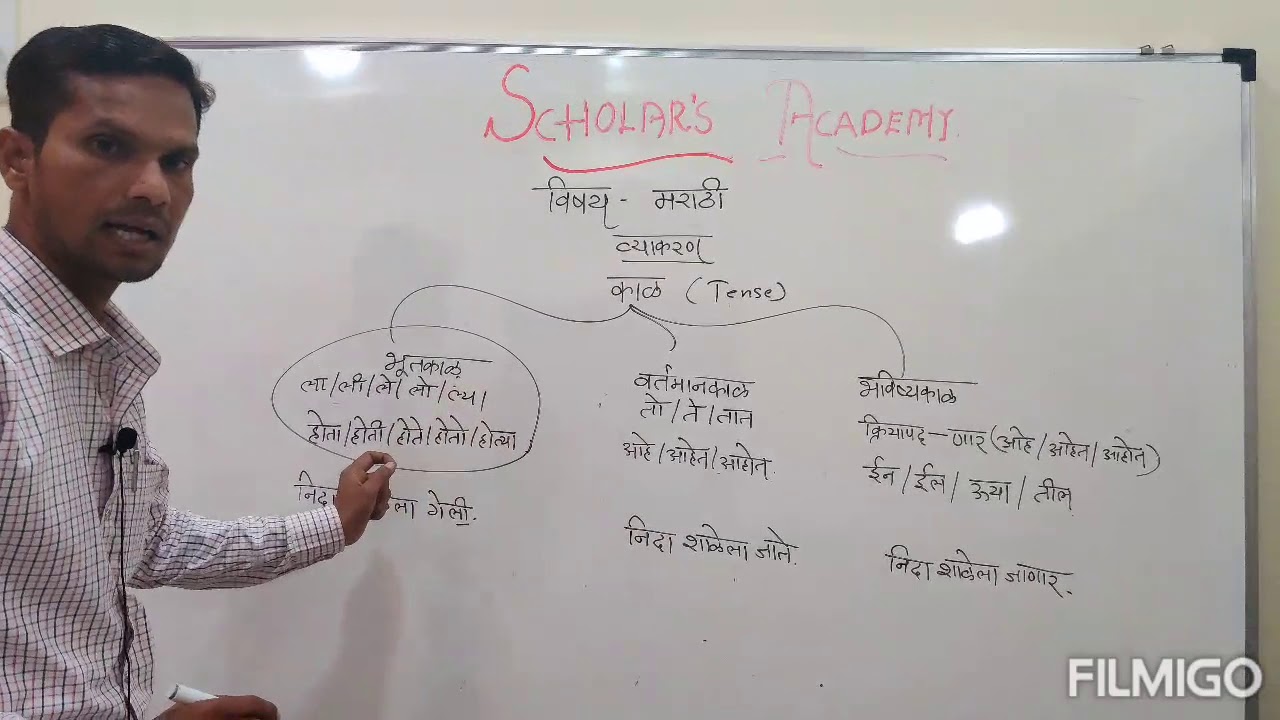 SCHOLAR'S ACADEMY.
विषय - मराठी
व्याकरण
काळ (Tense)
भूतकाळ
ला/ली/ले/लो/ल्या
होता/होती/होते/होतो/होत्या
गेली.
वर्तमानकाळ
तो/ते/तात
आहे/आहेत/आहोत.
निदा शाळेला जाते.
भविष्यकाळ
क्रियापद - णार (आहे/आहेत/आहोत)
ईन/ईल/ऊया/तील
निदा शाळेला जाणार.
FILMIGO